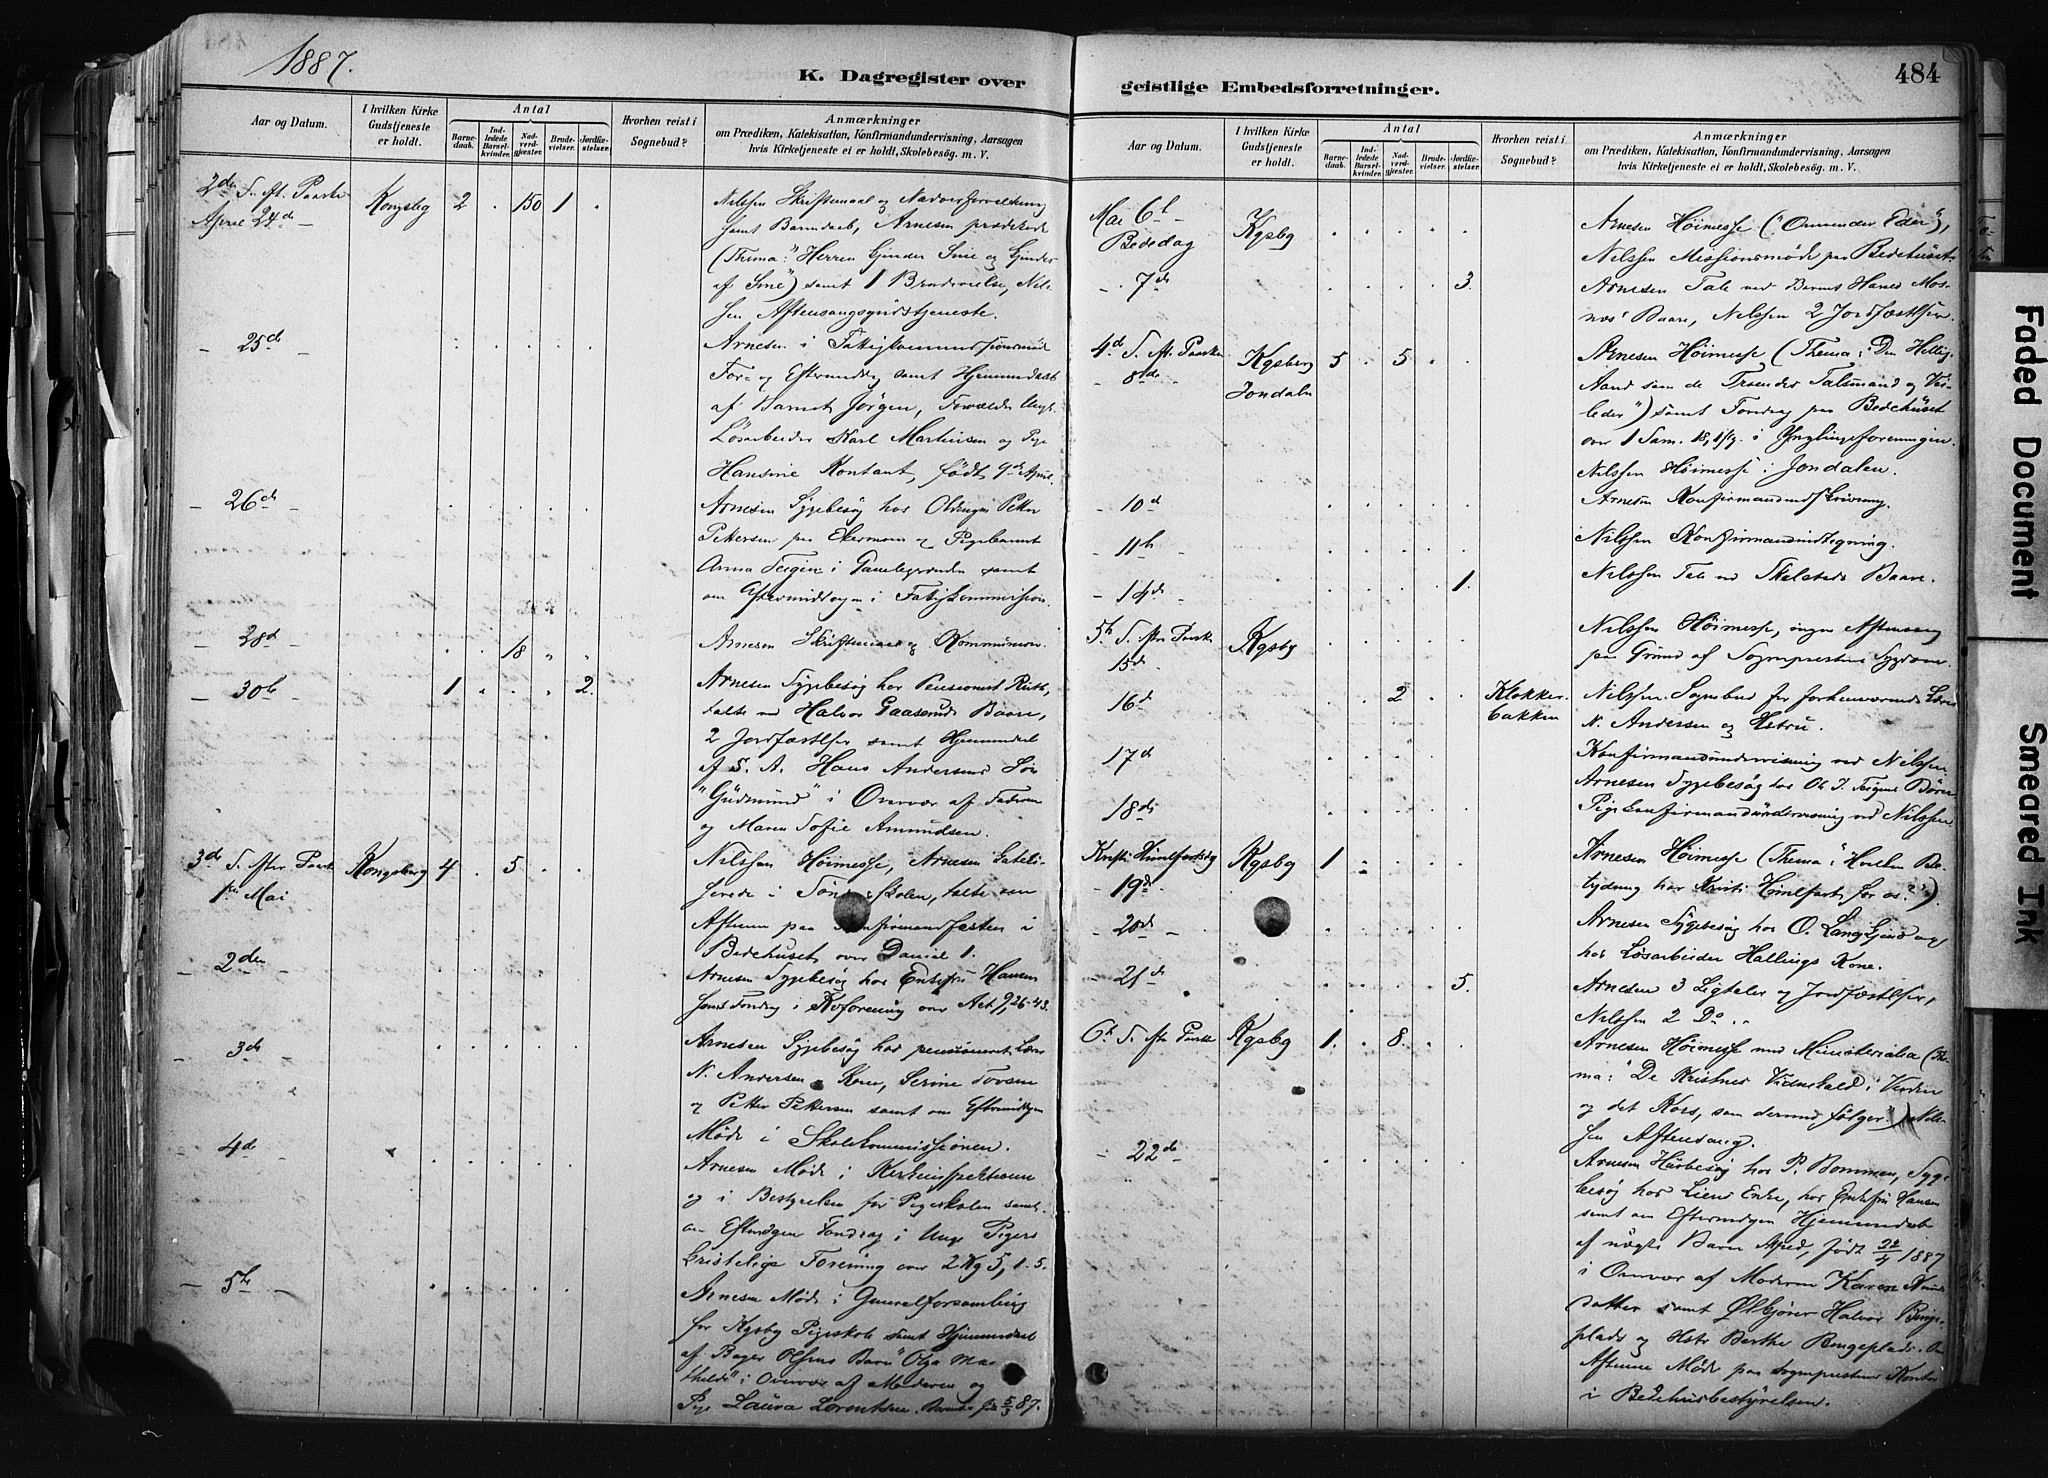 1887.
K. Dagregister over
Aar og Datum.
I hvilken Kirke Gudstjeneste er holdt.
Antal
Barnedaab.
Indledede Barselkvinder.
Nadverdgjæster.
Brudevielser.
Jordfæstelser.
Hvorhen reist i Sognebud?
Anmærkninger
om Prædiken, Katekisation, Konfirmandundervisning, Aarsagen
hvis Kirketjeneste ei er holdt, Skolebesøg. m. V.
2den S. eft. Paaske
April 24de Kongsbg 2 . 150 1 .
Nilssen Skriftemaal og
samt Barnedaab, Arnesen prædikede
(Thema: "Herren kjender Sine og kjendes
af Sine") samt 1 Brudevielse, Nils-
sen Aftensangsgudstjeneste.
25de
Arnesen i Fattigkommissionsmøde
For- og Eftermiddag samt Hjemmedaab
af Barnet Jørgen, Forældre Ungk.
Løsarbeider Karl Martinsen og Pige
Hansine Kontant, født 9de April.
26de
Arnesen Sygebesøg hos Petter
Pettersen paa og Pigebarnet
Anna Teigen i samt
om Eftermiddagen i Fatigkommission.
28de 18
Arnesen Skriftemaal og Kommunion.
30te 1 2.
Arnesen Sygebesøg hos Pensionist
talte ved Halvor Gaaseruds Baare,
2 Jordfæstelser samt Hjemmedaab
af S. A. Hans Andersens Søn
"Gudmund" i Overvær af Faderen
og Maren Sofie Amundsen.
3de S. efter Paaske Kongsberg 4 . 5 . .
1ste Mai
Nilssen Høimesse, Arnesen kateki-
serede i skolen, talte om
Aftenen paa Konfirmandfesten i
Bedehuset over Daniel 1.
2den
Arnesen Sygebesøg hos Enkefru Hansen
samt Foredrag i Kvforening over Act 9, 26-43.
3de
Arnesen Sygebesøg hos pensioneret Lærer
N. Andersens Kone, Serine Tovsen
og Petter Pettersen samt om Eftermiddagen
Møde i Skolekommissionen.
4de
Arnesen Møde i Kirkeinspektionen
og i Bestyrelsen for Pigeskolen samt
om Eftmdgen Foredrag i Unge Pigers
kristelige Forening over 2 Kg 5, 1-5.
5te
Arnesen Møde i Generalforsamling
for Kgsbg Pigeskole samt Hjemmedaab
af Bager Olsens Barn "Olga Ma-
thilde" i Overvær af Moderen og
Pige Laura Lorentsen. Barnet født 5/3 87.
484
geistlige Embedsforretninger.
Aar og Datum.
I hvilken Kirke Gudstjeneste er holdt.
Antal
Barnedaab.
Indledede Barselkvinder.
Nadverdgjæster.
Brudevielser.
Jordfæstelser.
Hvorhen reist i Sognebud?
Anmærkninger
om Prædiken, Katekisation, Konfirmandundervisning, Aarsagen
hvis Kirketjeneste ei er holdt, Skolebesøg. m. V.
Mai 6te
Bededag Kgsbg
Arnesen Høimesse ("Omvender Eder"),
Nilssen Missionsmøde paa Bedehuset.
7de 3.
Arnesen Tale ved Barnet Mos-
næs' Baare, Nilssen 2 Jordfæstelser.
4de S. eft. Paaske Kgsberg 5 . 5 . .
8de Jondalen
Arnesen Høimesse (Thema: "Den Hellig-
Aand som de Troendes Talsmand og Vei-
leder") samt Foredrag paa Bedehuset
over 1 Sam. 18, 1flg. i Ynglingeforeningen.
Nilssen Høimesse i Jondalen.
10de
Arnesen Konfirmandindskrivning.
11te
Nilssen Konfirmandindtegning.
14de 1.
Nilssen Tale ved Baare.
5te S. efter Paaske Kgsbg
15de
Nilssen Høimesse, ingen Aftensang
paa Grund af Sognepræstens Sygdom.
16de 2 Klokker-
bakken
Nilssen Sognebud for forhenværende Lærer
N. Andersen og Hstru.
17de
Konfirmandundervisning ved Nilssen.
Arnesen Sygebesøg hos Ole J. Teigens Børn
18de
Pigekonfirmandundervisning ved Nilssen.
Kristi Himlfartsdag Kgsbg 1
19de
Arnesen Høimesse (Thema: "Hvilken Be-
tydning har Kristi Himlfart for os?").
20de
Arnesen Sygebesøg hos O. Langkjend og
hos Løsarbeider Hallings Kone.
21de 5.
Arnesen 3 Ligtaler og Jordfæstelser,
Nilssen 2 Do.
6te S. efter Paaske Kgsbg 1. . 8. . .
Arnesen Høimesse med Ministerialia (The-
ma: "De Kristnes Vidnekald i Verden
og det Kors, som dermed følger") Nils-
sen Aftensang.
22de
Arnesen Husbesøg hos P. Bommen, Syge-
besøg hos Liens Enke, hos Enkefru Hansen
samt om Eftermdgen Hjemmedaab
af uægte Barn født 22/4 1887
i Overvær af Moderen Karen
datter samt Halvor Binge-
plads og Hstr Berthe Bingeplads. Om
Aftenen Møde paa Sognepræstens Kontor
i Bedehusbestyrelsen.
Faded Document
Smeared Ink